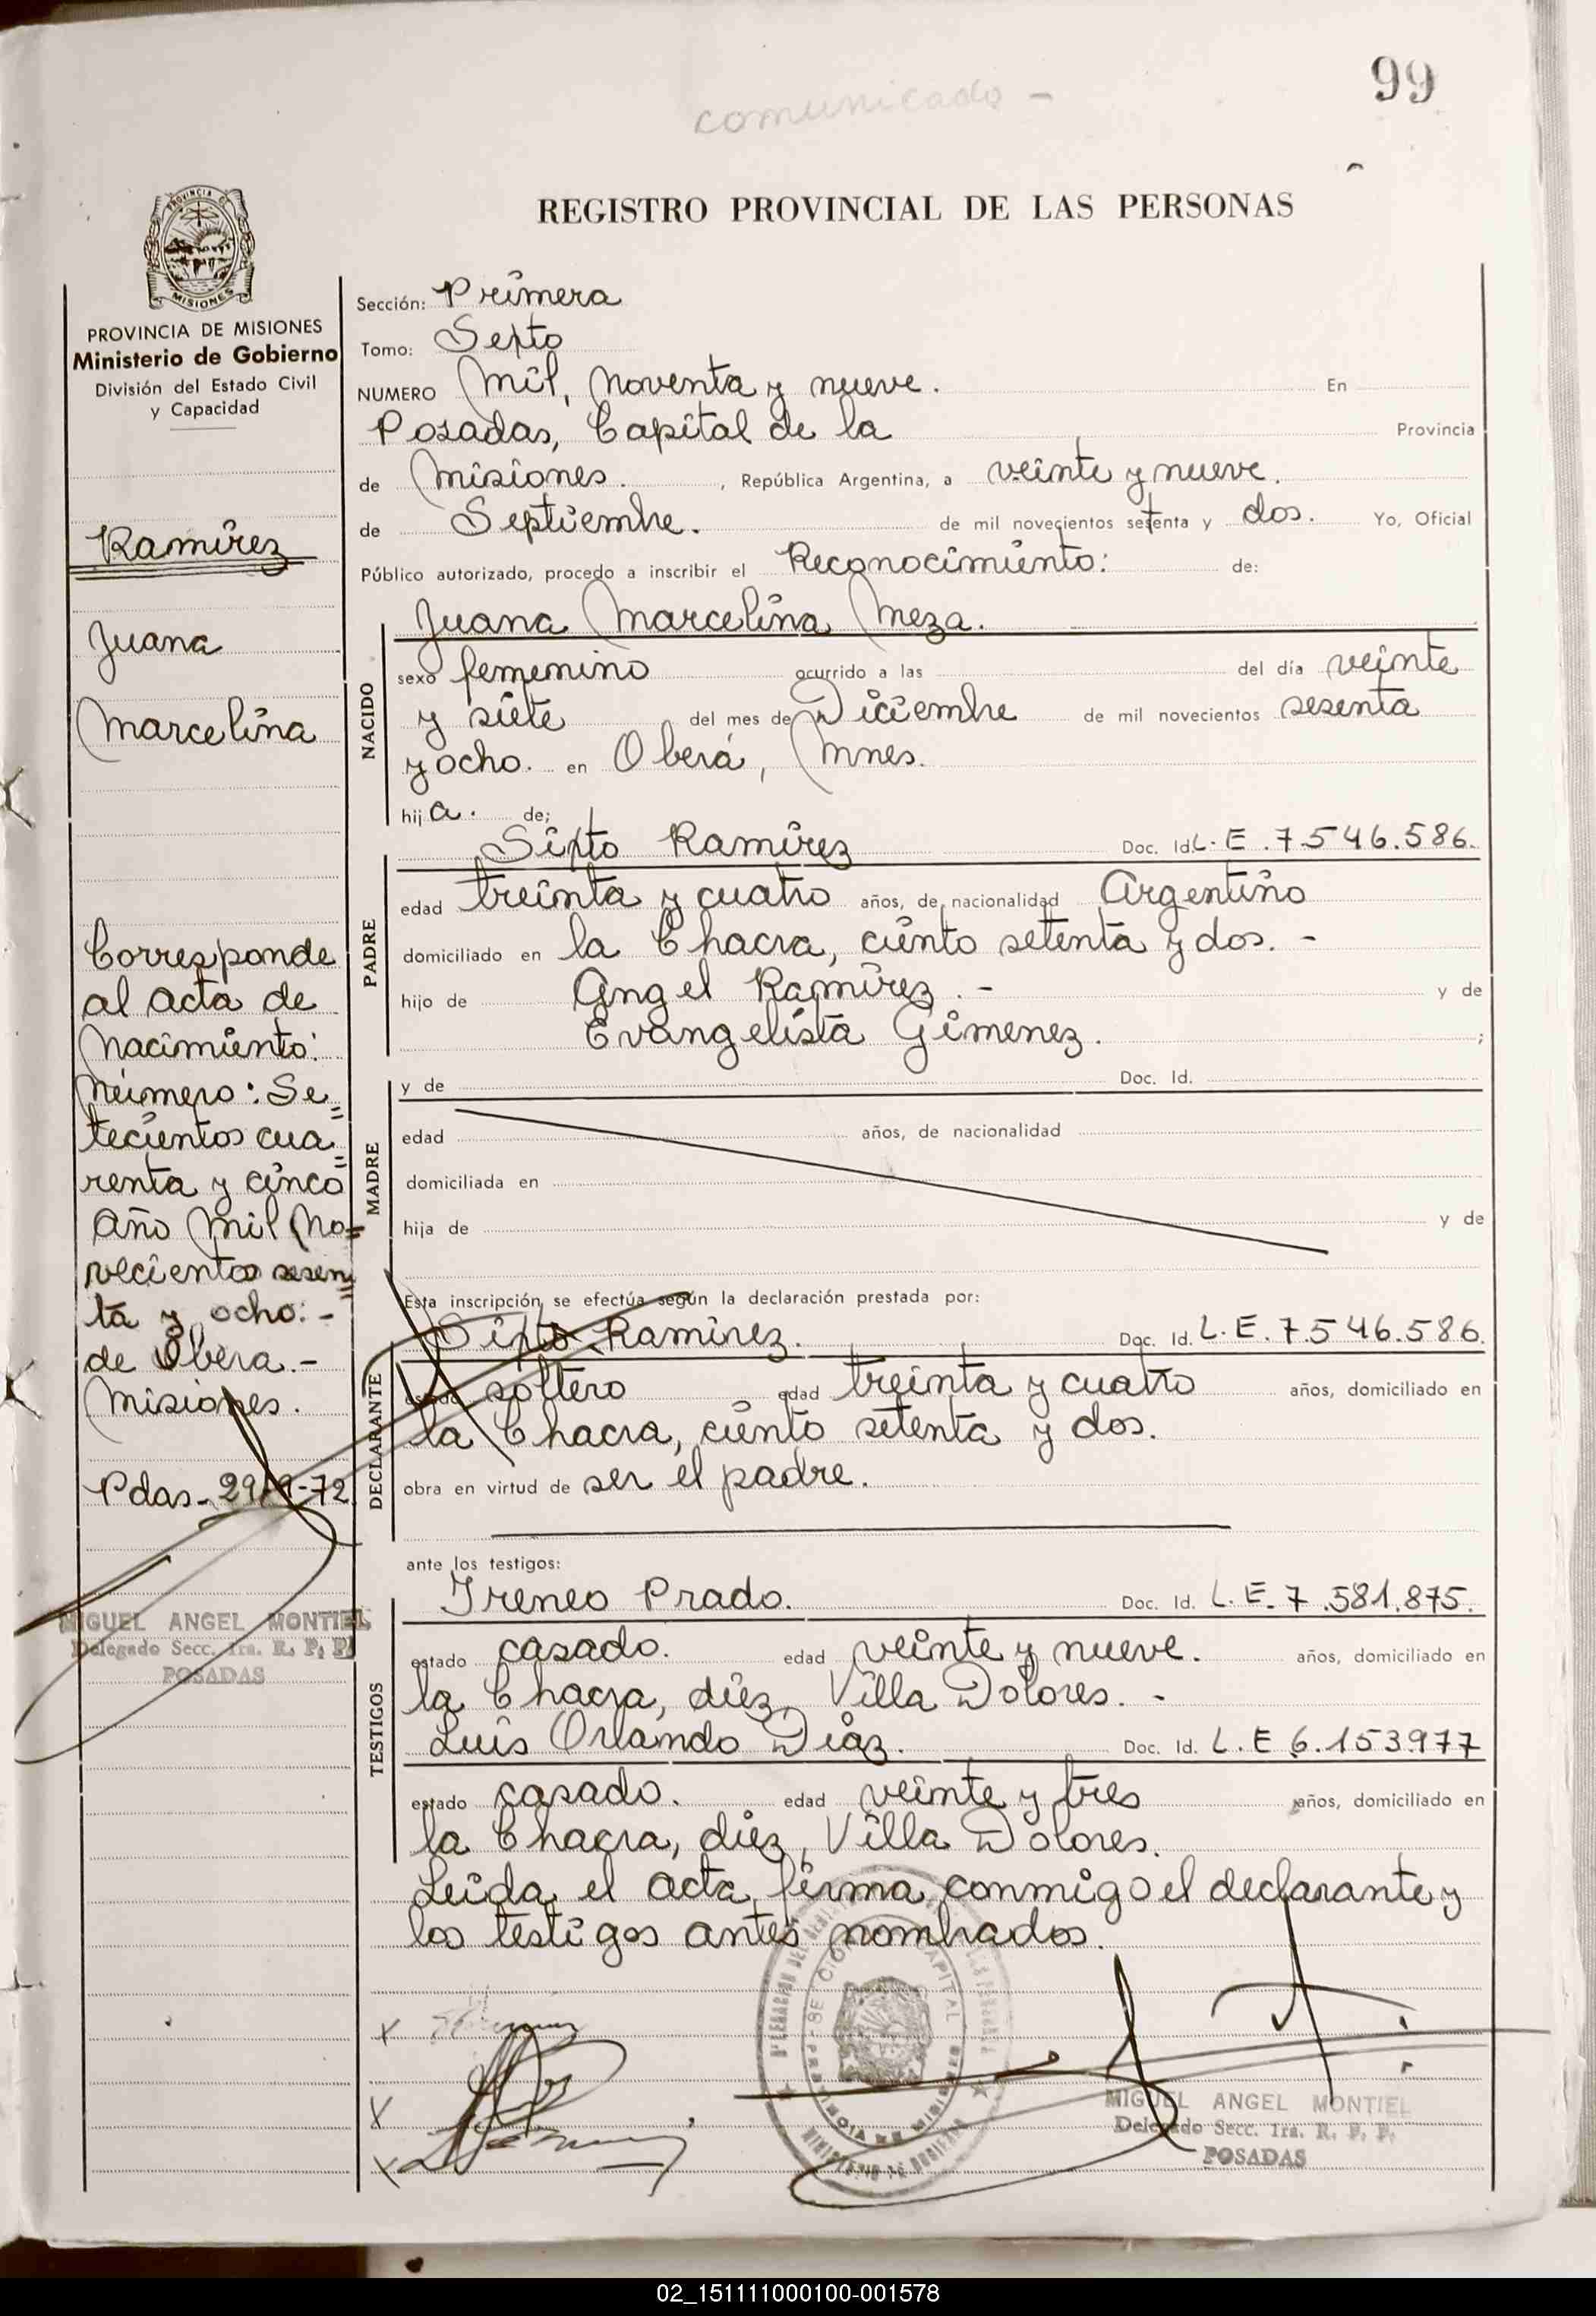 99
comunicado -
REGISTRO PROVINCIAL DE LAS PERSONAS
PROVINCIA DE MISIONES
Ministerio de Gobierno
División del Estado Civil
y Capacidad
Ramírez
Juana
Marcelina
Corresponde
al acta de
Nacimiento:
Número: Se=
tecientos cua=
renta y cinco
Año mil no=
vecientos sesen=
ta y ocho: -
de Oberá. -
Misiones.
Pdas- 29-9-72
MIGUEL ANGEL MONTIEL
Delegado Secc. 1ra. R. P. P.
POSADAS
Sección: Primera
Tomo: Sexto
NUMERO Mil, noventa y nueve. En
Posadas, Capital de la Provincia
de Misiones. , República Argentina, a veinte y nueve.
de Septiembre. de mil novecientos setenta y dos. Yo, Oficial
Público autorizado, procedo a inscribir el Reconocimiento: de:
Juana Marcelina Meza.
NACIDO
sexo femenino ocurrido a las del día veinte
y siete del mes de Diciembre de mil novecientos sesenta
y ocho. en Oberá, Mnes.
hija. de;
PADRE
Sixto Ramírez Doc. Id. L.E. 7.546.586.
edad treinta y cuatro años, de nacionalidad Argentino
domiciliado en la Chacra, ciento setenta y dos. -
hijo de Angel Ramírez. - y de
Evangelista Gimenez. ;
MADRE
y de Doc. Id.
edad años, de nacionalidad
domiciliada en
hija de y de
Esta inscripción se efectúa según la declaración prestada por:
DECLARANTE
Sixto Ramírez. Doc. Id. L.E. 7.546.586.
estado soltero edad treinta y cuatro años, domiciliado en
la Chacra, ciento setenta y dos.
obra en virtud de ser el padre.
ante los testigos:
TESTIGOS
Ireneo Prado. Doc. Id. L.E. 7.581.875.
estado casado. edad veinte y nueve. años, domiciliado en
la Chacra, diez, Villa Dolores. -
Luis Orlando Diaz. Doc. Id. L.E 6.153.977
estado casado. edad veinte y tres años, domiciliado en
la Chacra, diez, Villa Dolores.
Leída el acta, firma conmigo el declarante y
los testigos antes nombrados.
MIGUEL ANGEL MONTIEL
Delegado Secc. 1ra. R. P. P.
POSADAS
02_151111000100-001578